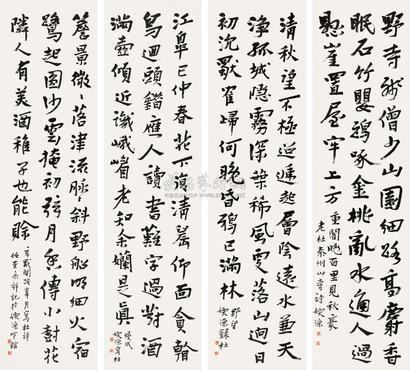 野寺殘僧少山園細路高麝香
眠石竹鸚鵡啄金桃亂水通人過
懸崖置屋牢上方重閣晚百里見秋毫
老杜秦州山寺詩
清秋望不極迢遞起層陰遠水兼天
淨孤城隱霧深葉稀風更落山迥日
初沈獸雀歸何晚昏鴉已滿林
野望
江皋已仲春花下復清晨仰面貪看
鳥迴頭錯應人讀書難字過對酒
滿壺傾近識峨嵋老知余嬾是真
漫成
簷景微微落津流脈脈斜野船明細火宿
鷺起圓沙雲掩初弦月香傳小樹花
隣人有美酒稚子也能賒